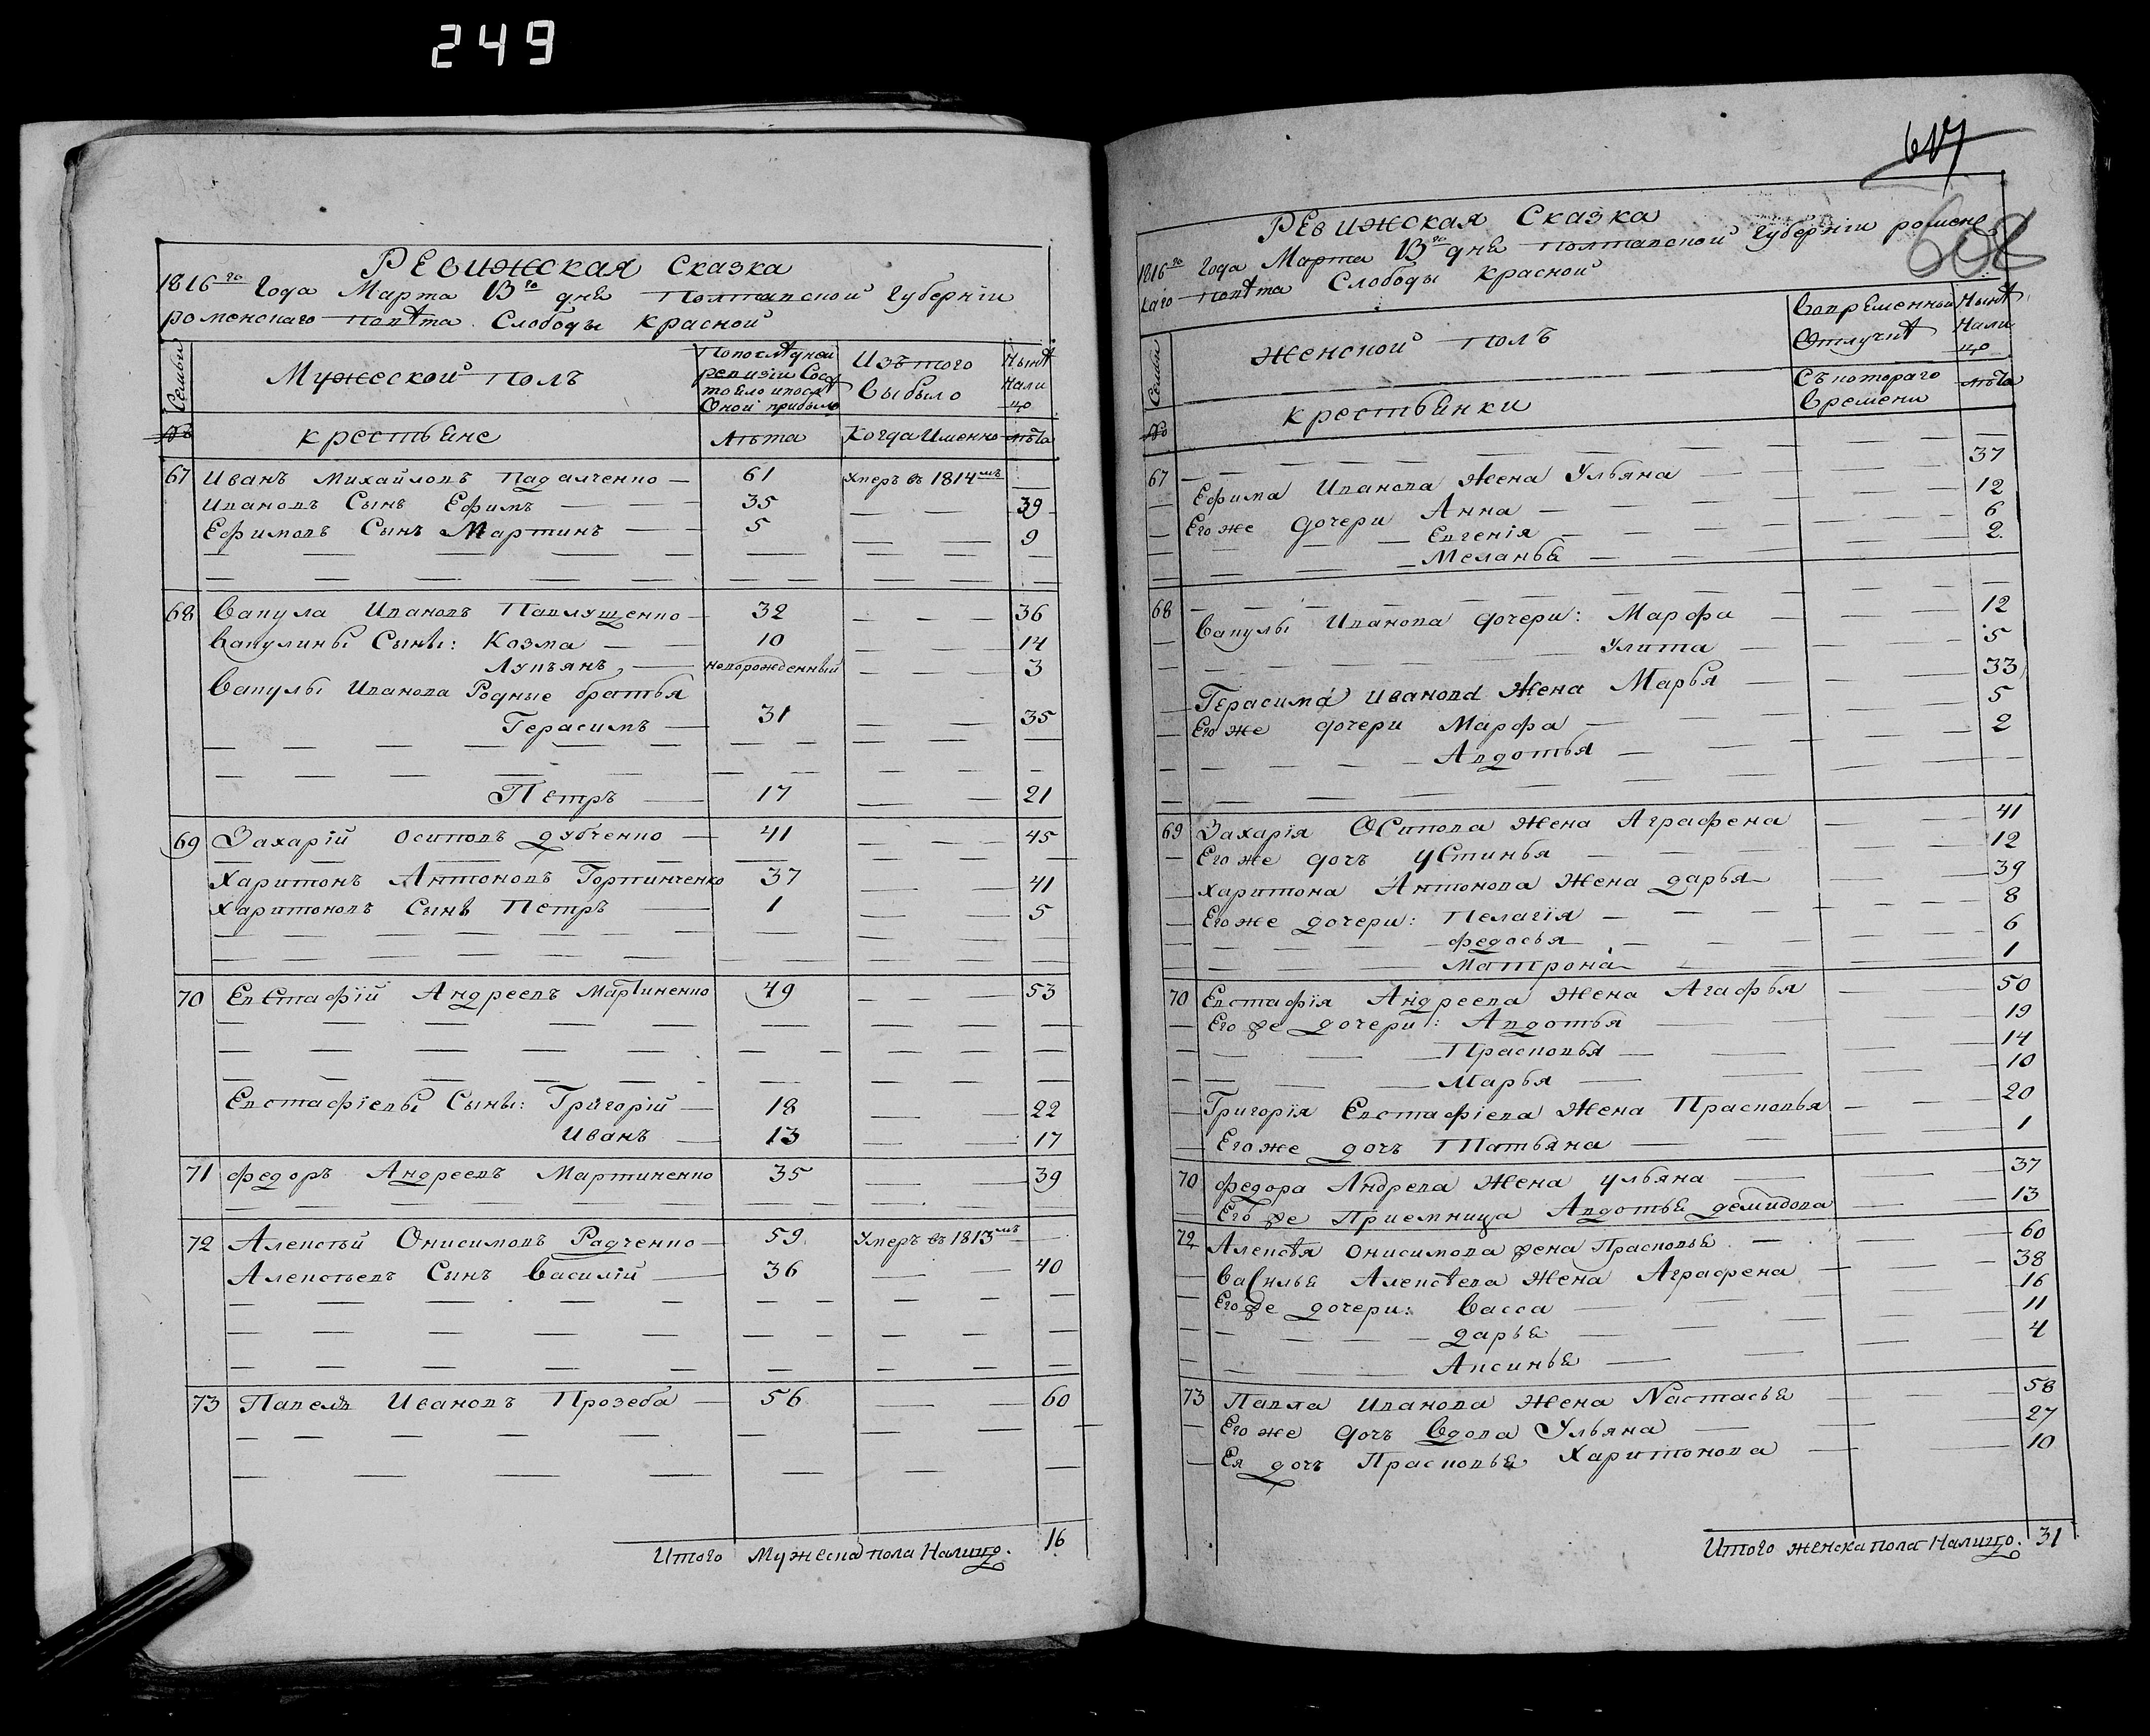 249
РЕвижская Сказка
1816го Года Марта 13го дня Полтавской Губернiи
роменскаго повѣта Слободы красной
Семьи
Мужеской полъ
Попослѣдней
ревизiи Сос
тояло ипослѣ
Оной прибыло
Изътого
Выбыло
Нынѣ
Нали
цо
№
крестьяне
Лѣта
Когда Именно
лѣта
67 Иванъ Михайловъ Падалченко — 61 Умеръ въ 1814мъ —
Ивановъ Сынъ Ефимъ — — 35 — — 39
Ефимовъ Сынъ Мартинъ — 5 — — 9
68 Вакула Ивановъ Павлущенко — 32 — — — 36
Вакулины Сыны: Козма — — 10 — — 14
Лукъянъ — новорожденный — — 3
Вакулы Иванова Родные братья
Герасимъ — 31 — — 35
Петръ — 17 — — 21
69 Захарiй Осиповъ дубченко — 41 — — — 45
Харитонъ Антоновъ Горпинченко 37 — — 41
Харитоновъ Сынъ Петръ — 1 — — 5
70 Евстафiй Андреевъ Мартиненко 49 — — — 53
Евстафiевы Сыны: Григорiй — 18 — — 22
Иванъ — 13 — — 17
71 федоръ Андреевъ Мартиненко 35 — — 39
72 Алексѣй Онисимовъ Радченко — 59 Умеръ въ 1813мъ —
Алексѣевъ Сынъ Василiй — 36 — — 40
73 Павелъ Ивановъ Прозеба — 56 — — 60
Итого Мужеска пола Налицо. 16
617
608
РЕвижская Сказка
1816го Года Марта 13го дня Полтавской Губернiи роменс
каго повѣта Слободы Красной
Семьи
Женской полъ
Вовременной
Отлучкѣ
Нынѣ
Нали
цо
№
крестьянки
Съкотораго
Времени
лѣта
67 — — — — — —
Ефима Иванова Жена Ульяна — — 37
Егоже дочери Анна — — 12
Евгенiя — — 6
Меланья — — 2
68 — — — — — —
Вакулы Иванова дочери: Марфа — — 12
Улита — — 5
Герасима Иванова Жена Марья — — 33
Егоже дочери Марфа — — 5
Авдотья — — 2
69 Захарiя Осипова Жена Аграфена — — 41
Егоже дочь устинья — — 12
харитона Антонова Жена дарья — — 39
Егоже дочери: Пелагiя — — 8
федосья — — 6
Матрона — — 1
70 Евстафiя Андреева Жена Агафья — — 50
Егоже дочери: Авдотья — — 19
Прасковья — — 14
Марья — — 10
Григорiя Евстафiева Жена Прасковья — — 20
Егоже дочь Татьяна — — 1
70 федора Андрева Жена ульяна — — 37
Егоже Приемница Авдотья демидова — — 13
72 Алексѣя Онисимова жена Прасковья — — 60
Василья Алексѣева Жена Аграфена — — 38
Егоже дочери: Васса — — 16
дарья — — 11
Аксинья — — 4
73 Павла Иванова Жена Настасья — — 58
Егоже дочь Вдова Ульяна — — 27
Ея дочь Прасковья Харитонова — — 10
Итого женска пола Налицо. 31